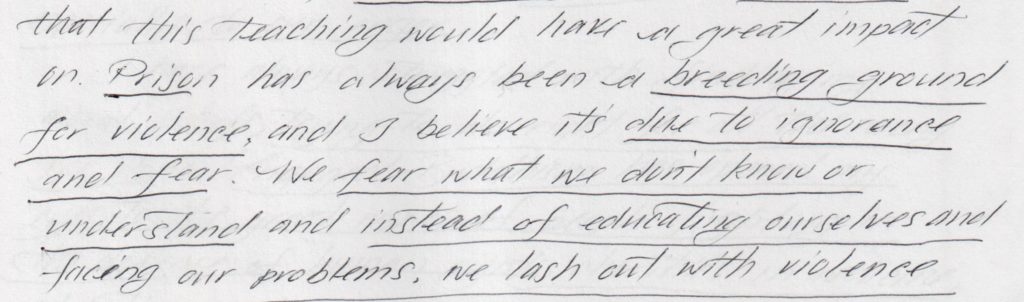 that this teaching would have a great impact
on. Prison has always been a breeding ground
for violence, and I believe it's due to ignorance
and fear. We fear what we don't know or
understand and instead of educating ourselves and
facing our problems, we lash out with violence